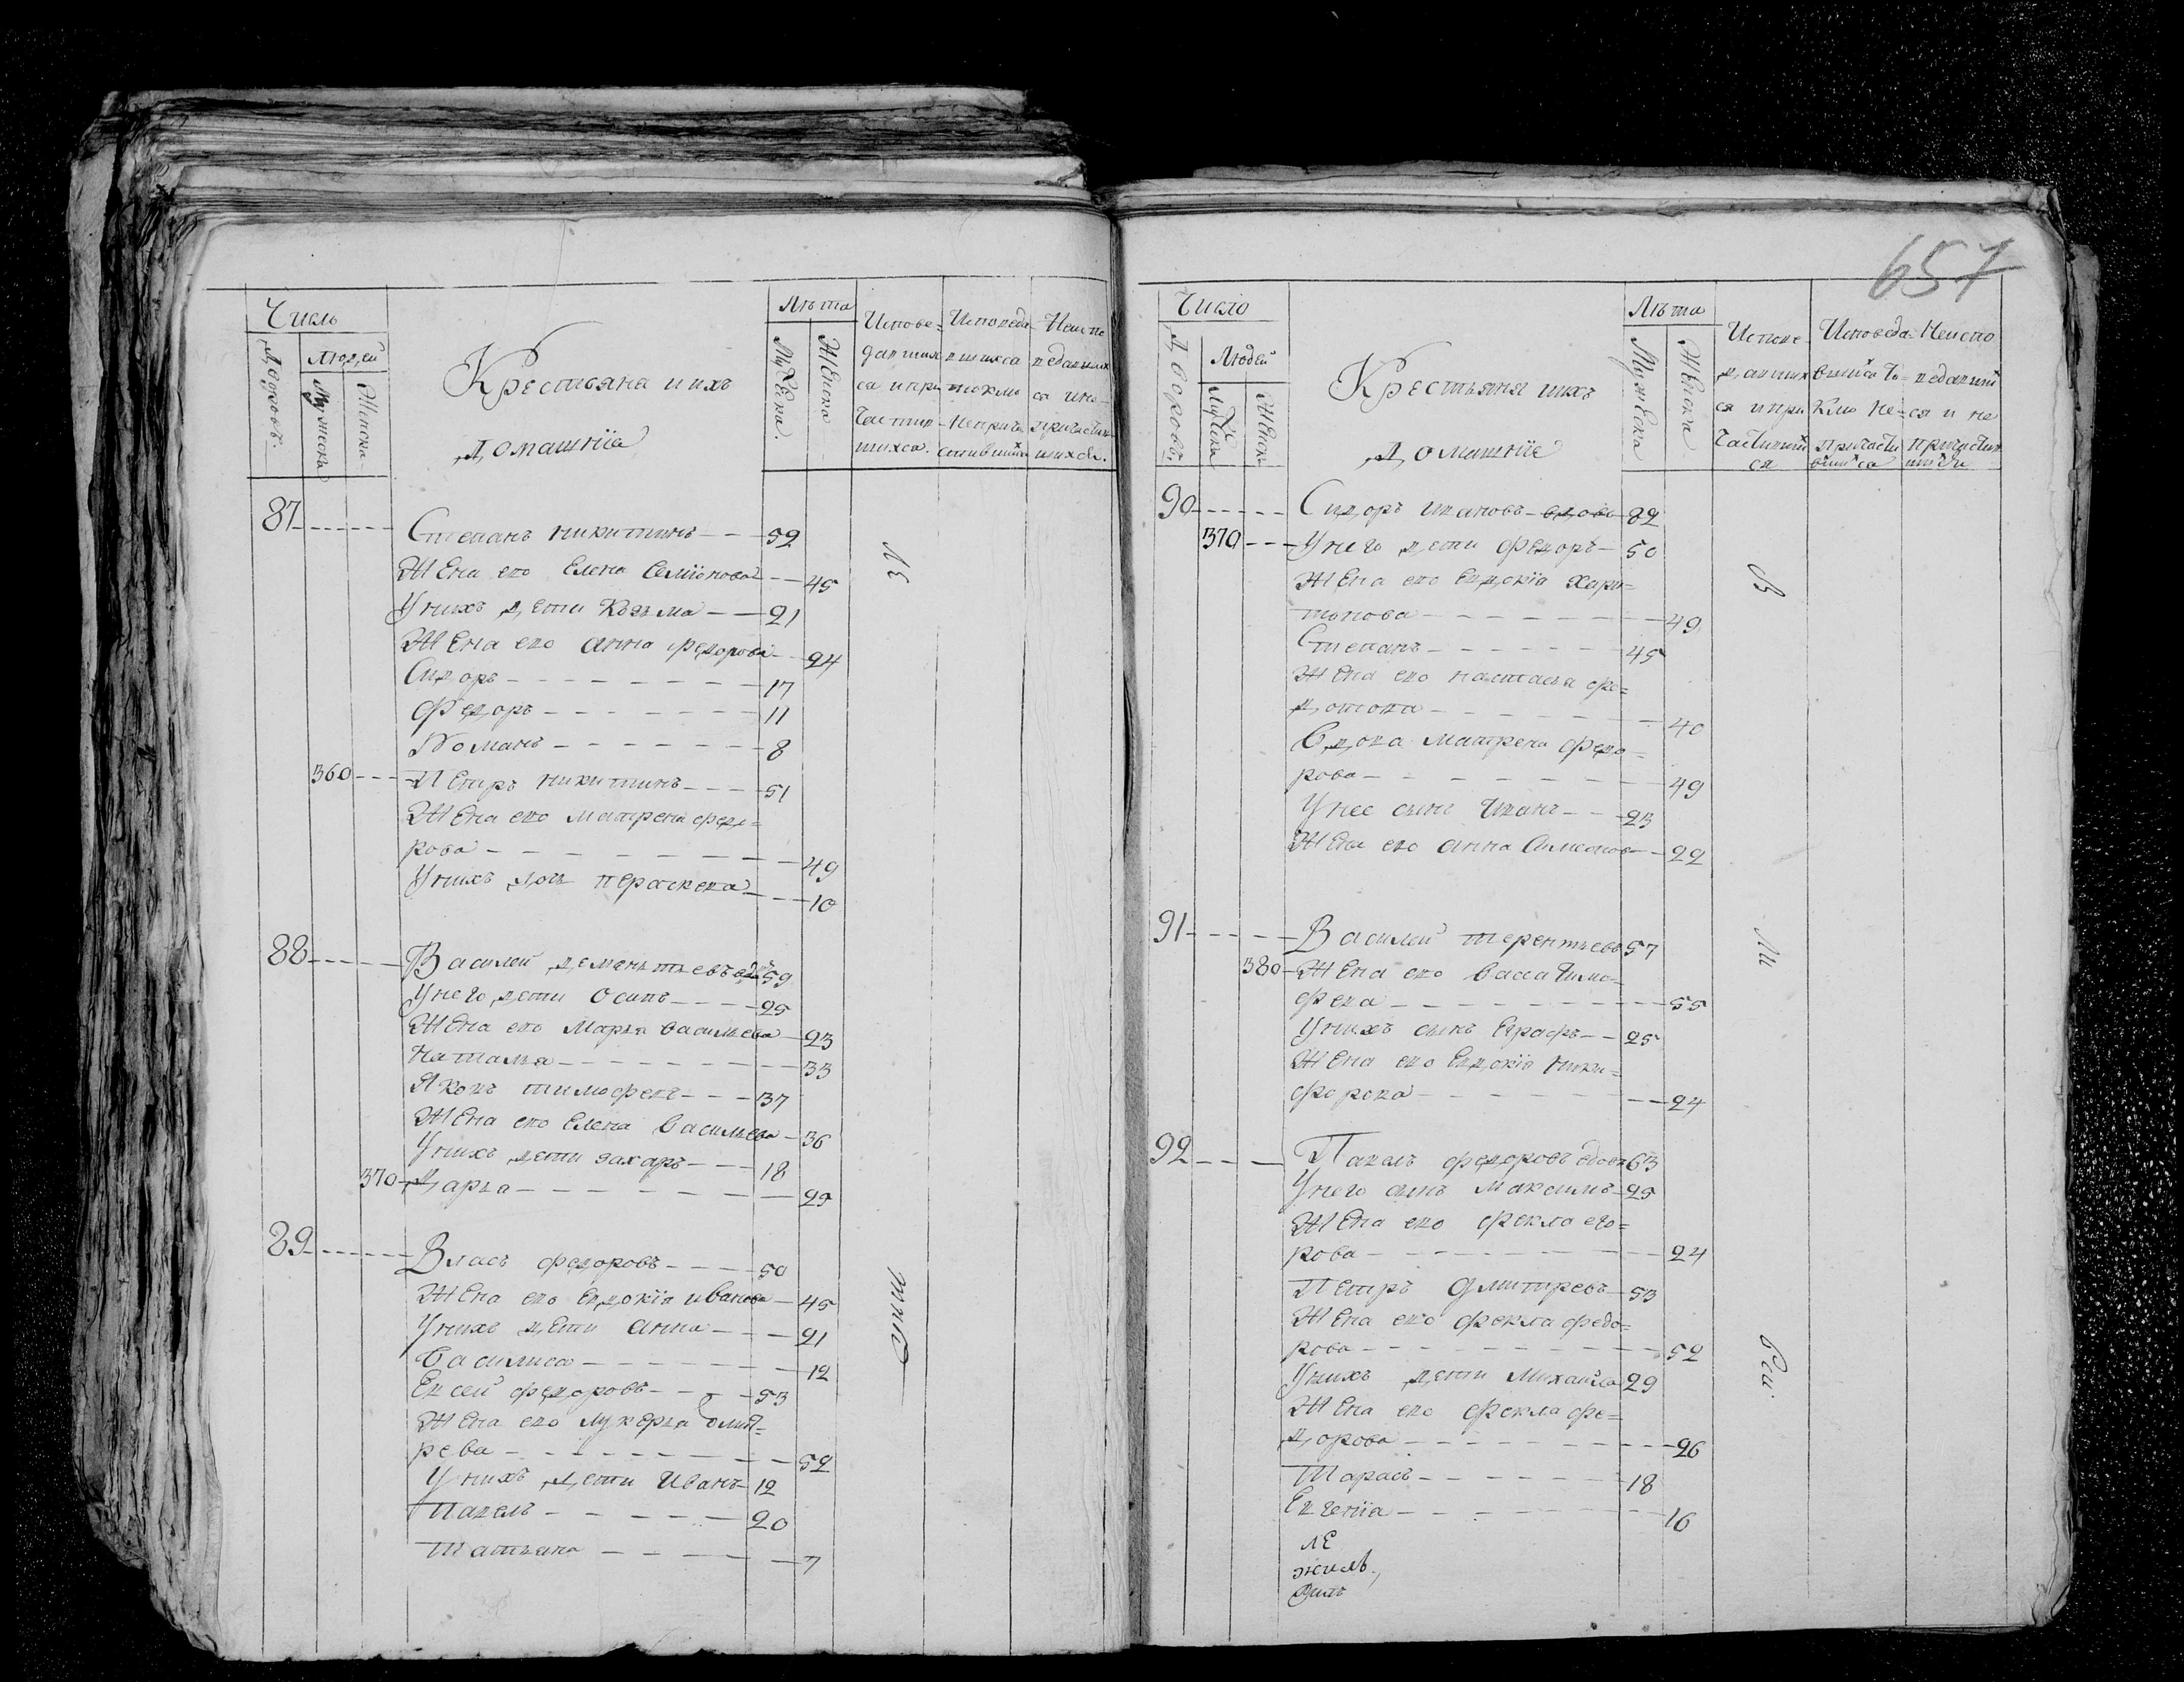 Число
Дворовъ.
Людей
Мужеска
Женска
Крестьяна и ихъ
Домашнїа
Лѣта
Мужеска.
Женска
Исповедавшихса и причастившихса.
Исповедавшихса токмо непричастившийса
Неисповедавшихса и непричастившихсь.
87
Степанъ никитинъ 52
Жена его Елена Семїонова 45
У нихъ дети Козьма 21
Жена его анна федорова 24
Сидоръ 17
Федоръ 11
Романъ 8
360 Петръ никитинъ 51
Жена его матрена федо=
рова 49
У нихъ дочь параскева 10
88
Василей дементьевъ вдовъ 59
У него дети Осипъ 25
Жена его Марья васильева 23
Наталья 33
Яковъ тимофеевъ 37
Жена его Елена Васильева 36
У нихъ дети захаръ 18
370 Дарья 25
89
Власъ федоровъ 50
Жена его Евдокїа иванова 45
У нихъ дети анна 21
Василиса 12
Евсей федоровъ 53
Жена его лукерья дмит=
рева 52
У нихъ дети Иванъ 12
Павелъ 20
Татьяна 7
657
Число
Дворовъ.
Людей
Мужеска
Женска
Крестьяня иихъ
Домашнїе
Лѣта
Мужеска
Женска
Исповедавшихся и причастившийся
Исповедавшийса токмо непричастившийса
Неисповедавший ся и не причастившийся
90
Сидоръ ивановъ вдовъ 82
370 У него дети федоръ 50
Жена его Евдокїа хари=
тонова 49
Степанъ 45
Жена его настасья фе=
дотова 40
Вдова матрена федо=
рова 49
У нее сынъ Иванъ 23
Жена его анна 22
91
Василей терентьевъ 57
380 Жена его васса тимо=
феева 55
У нихъ сынъ Евграфъ 25
Жена его Евдокїа ники=
форова 24
92
Павелъ федоровъ вдовъ 63
У него сынъ Максимъ 25
Жена его фекла его=
рова 24
Петръ дмитревъ 53
Жена его фекла федо=
рова 52
У нихъ дети Михайла 29
Жена его фекла фе=
дорова 26
Тарасъ 18
Евгенїа 16